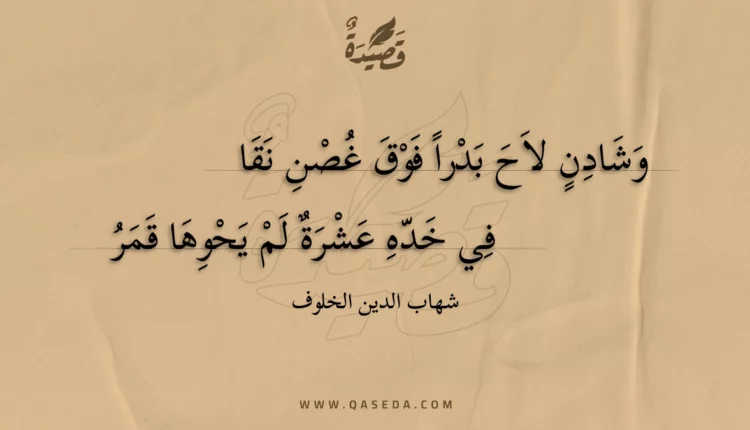 قَصِيْدَةٌ
وَشَادِنٍ لاَحَ بَدْراً فَوْقَ غُصْنِ نَقَا
فِي خَدّهِ عَشْرَةٌ لَمْ يَحْوِهَا قَمَرُ
شهاب الدين الخلوف
WWW.QASEDA.COM